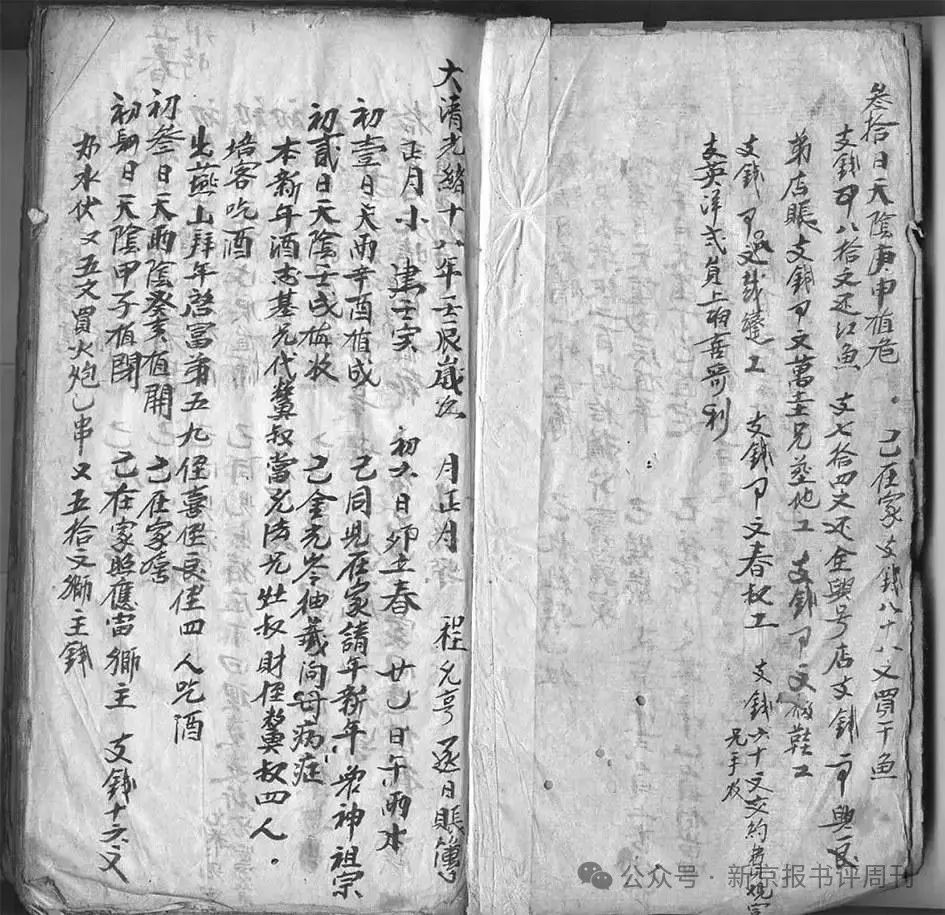 叁拾日天陰庚申值危 己在家支錢八十八文買干魚
支錢 八拾文还江魚 支七拾四文还全興号店支錢 興良
弟店賬 支錢 文萬士兄 他工 支錢 文 鞋工
支錢 裁縫工 支錢 文春叔工 支錢六十文交約
兄手收
支英洋弍員上 喜哥利
大清光緒十八年壬辰歲次 月正月 程允亨逐日賬簿
正月小 建壬寅 初六日卯立春 廿一日午雨水
初壹日天雨辛酉值成 己同兄在家請年新年 神祖宗
初貳日天陰壬戌值收 己金元 仙義問母病症
本新年酒志基兄代 叔當 法兄灶叔財侄 叔四人
培客吃酒
出燕山拜年啓富弟五九侄喜侄良侄四人吃酒
初叁日天雨陰癸亥值開 己在家
初肆日天陰甲子值閉 己在家照應當獅主 支錢十六文
办水伏又五文買火炮乙串又五拾文獅主錢
公众号·新京报书评周刊